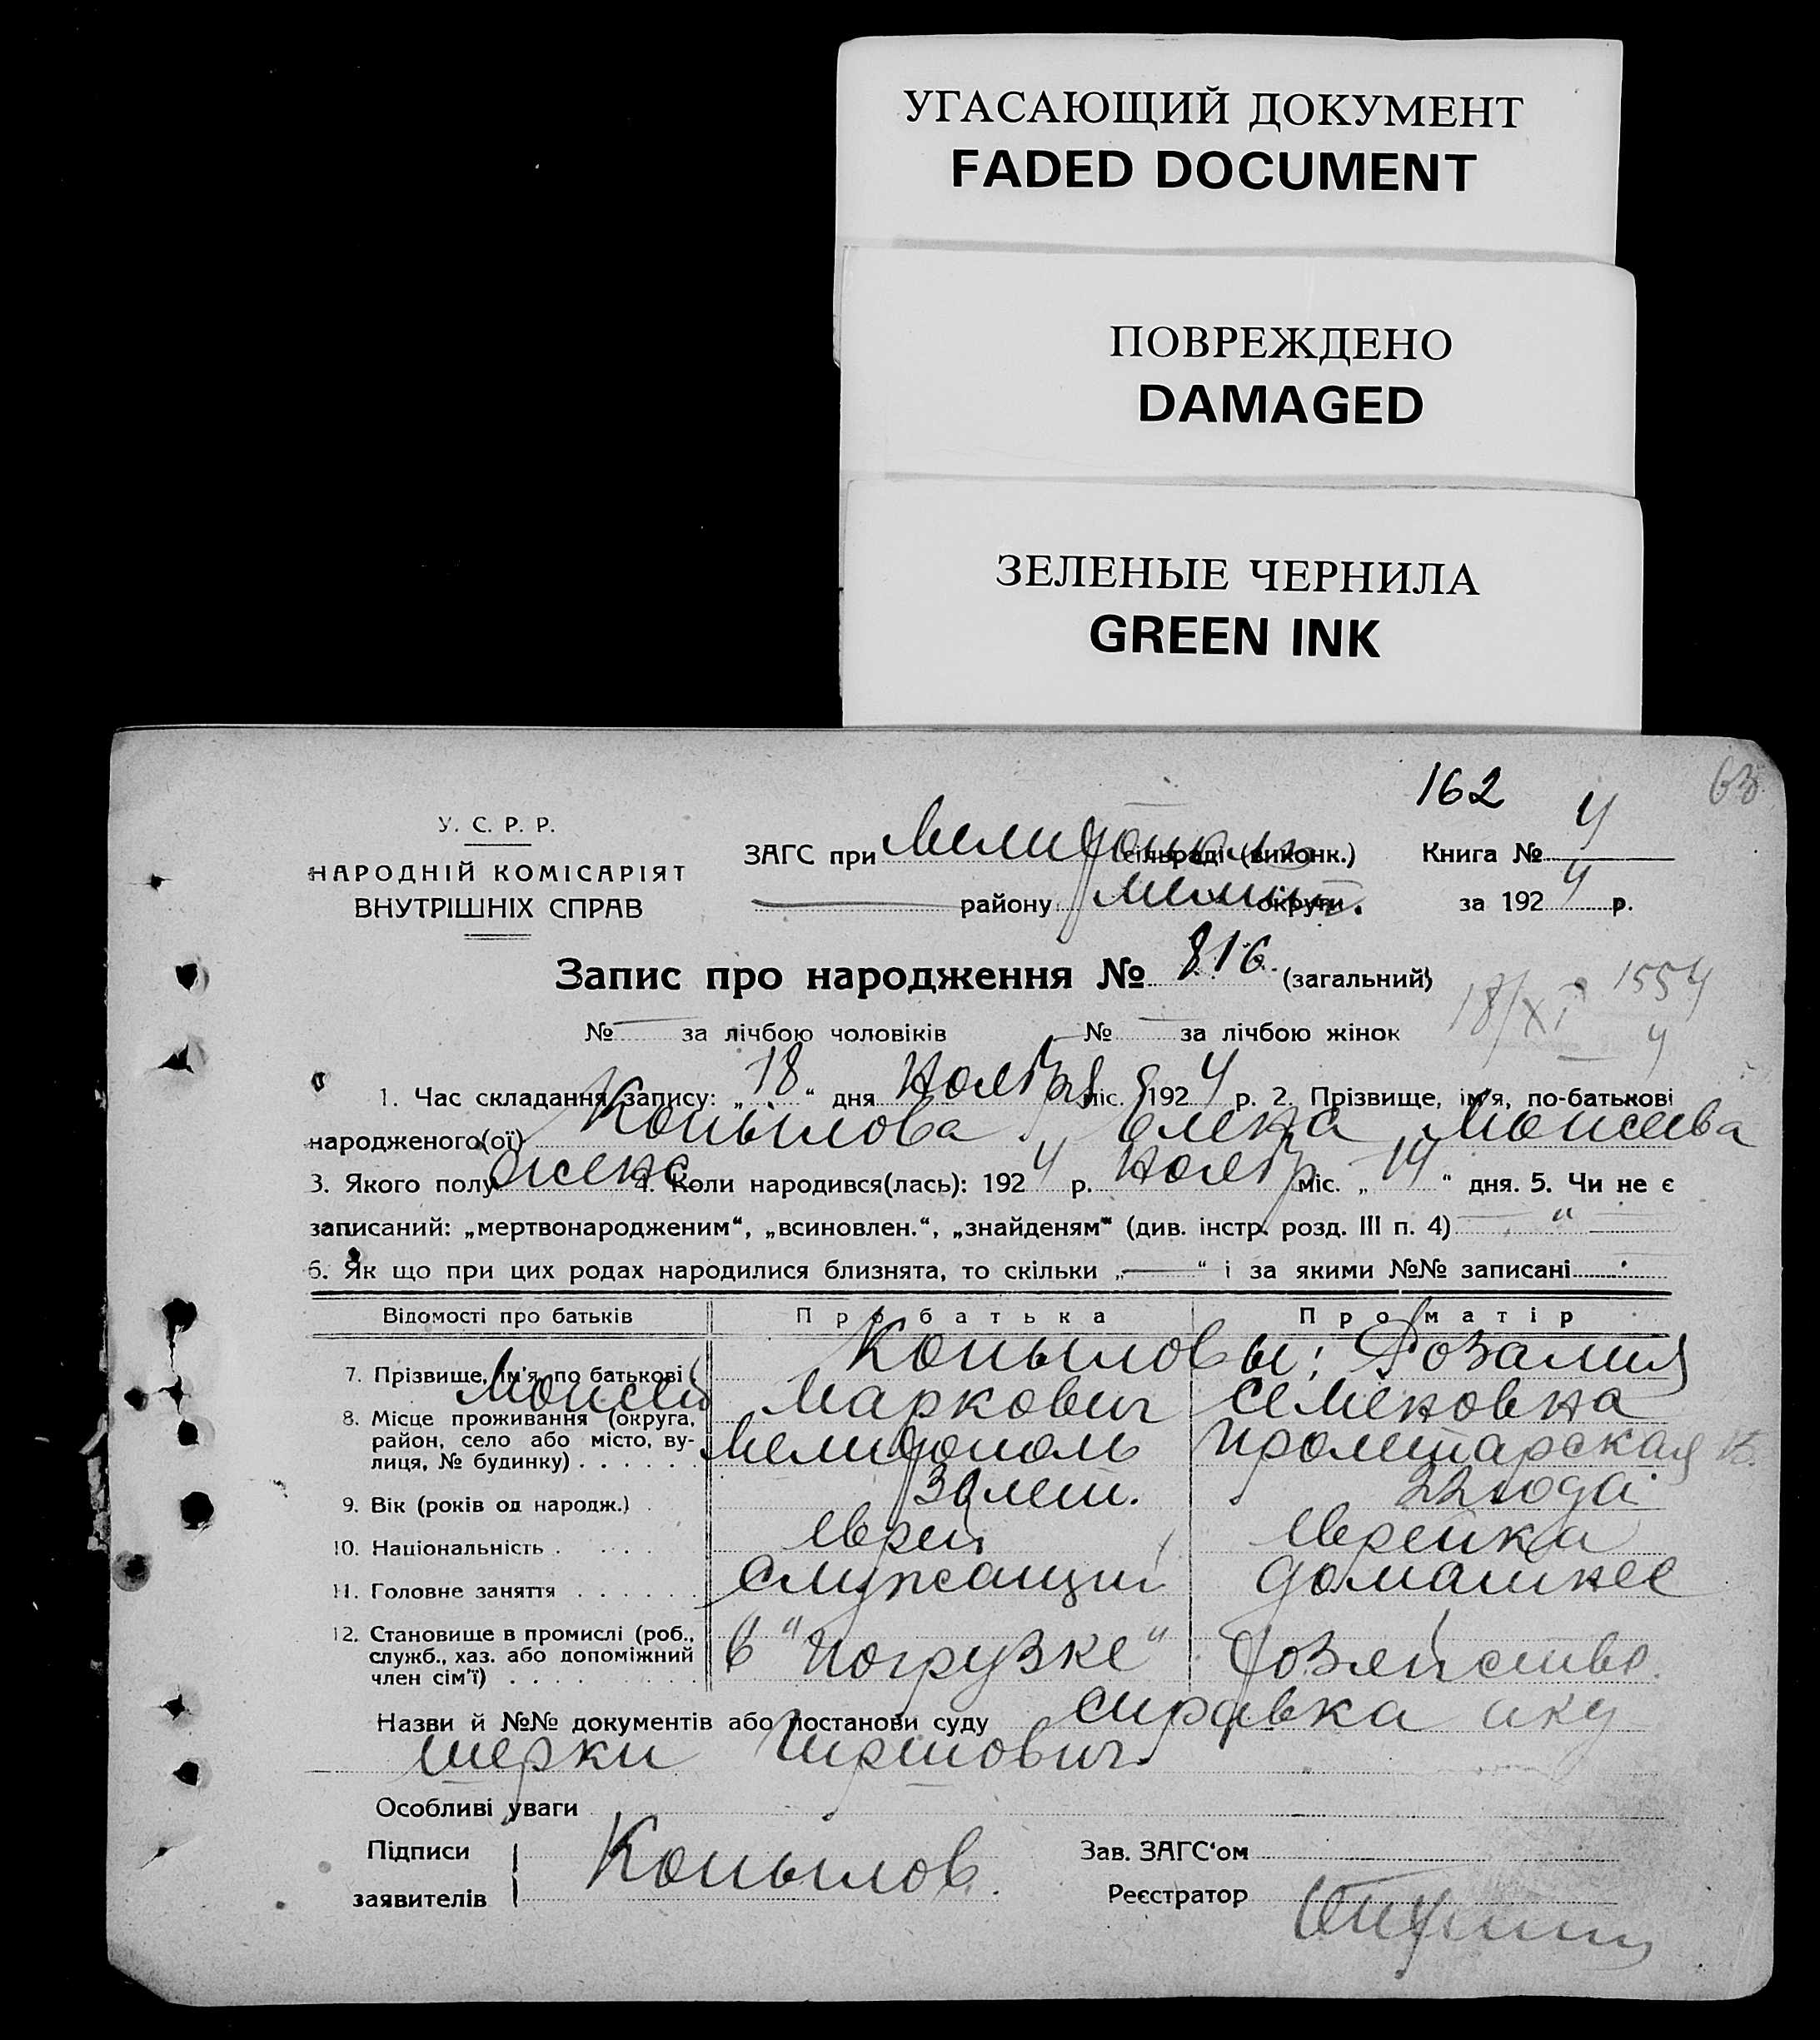 УГАСАЮЩИЙ ДОКУМЕНТ
FADED DOCUMENT
ПОВРЕЖДЕНО
DAMAGED
ЗЕЛЕНЫЕ ЧЕРНИЛА
GREEN INK
162 63
У. С. Р. Р.
НАРОДНІЙ КОМІСАРІЯТ
ВНУТРІШНІХ СПРАВ
ЗАГС при Мелитополь сільраді (виконк.) Книга № 4
району Мелит. округи за 1924 р.
Запис про народження № 816. (загальний)
18/XI 1554
4
№ — за лічбою чоловіків № — за лічбою жінок
1. Час складання запису: „18“ дня Ноября міс. 1924 р. 2. Прізвище, ім'я, по-батькові
народженого(ої) Копылова Елена Моисеева
3. Якого полу женс 4. Коли народився(лась): 1924 р. Ноябр міс. „14“ дня. 5. Чи не є
записаний: „мертвонародженим“, „всиновлен.“, „знайденям“ (див. інстр. розд. III п. 4) — „ —
6. Як що при цих родах народилися близнята, то скільки „—“ і за якими №№ записані
Відомості про батьків Про батька Про матір
7. Прізвище, ім'я, по батькові Копыловы: Розалия
Моисей Маркович Семеновна
8. Місце проживання (округа,
район, село або місто, ву-
лиця, № будинку) Мелитополь Пролетарская
9. Вік (років од народж.) лет. 22 года
10. Національність Еврей Еврейка
11. Головне заняття Служащий домашнее
12. Становище в промислі (роб.,
служб., хаз. або допоміжний
член сім'ї) в "Погрузке" хозяйство
Назви й №№ документів або постанови суду справка аку
шерки Гиршович
Особливі уваги
Підписи
заявителів Копылов
Зав. ЗАГС'ом
Реєстратор